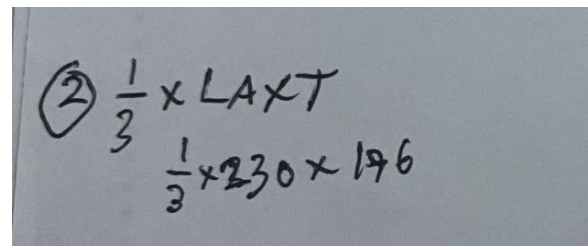 ② 1/3 × LA×T
1/3 × 230 × 196